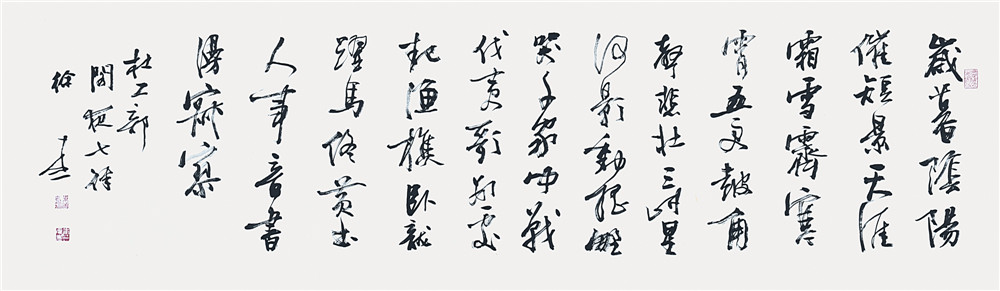 歲暮陰陽
催短景天涯
霜雪霽寒
宵五更鼓角
聲悲壯三峽星
河影動搖野
哭千家聞戰
伐夷歌處
起漁樵臥龍
躍馬終黃土
人事音書
漫寂寥
杜工部
閣夜七律
徐